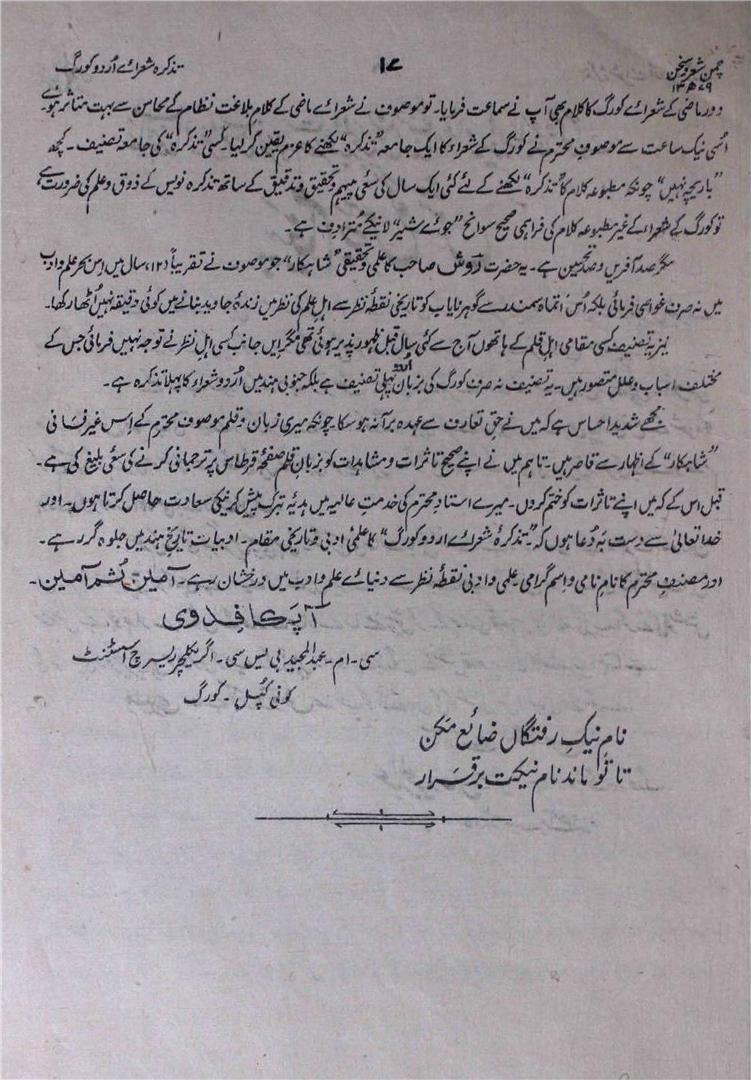 چمن شعر و سخن
۱۳۷۹ھ
۱۷
تذکرہ شعرائے اُردو کورگ
دور ماضی کے شعرائے کورگ کا کلام بھی آپ نے سماعت فرمایا۔ تو موصوف نے شعرائے ماضی کے کلام بلاغت نظام کے محاسن سے بہت متاثر ہوئے۔
اُسی نیک ساعت سے موصوف محترم نے کورگ کے شعراء کا ایک جامعہ "تذکرہ" لکھنے کا عزم یقین کر لیا۔ کسی "تذکرہ" کی جامعہ تصنیف۔ کچھ
"بازیچہ نہیں" چونکہ مطبوعہ کلام کا "تذکرہ" لکھنے کے لئے کئی ایک سال کی سعیٔ پیہم و تحقیق و تدقیق کے ساتھ تذکرہ نویس کے ذوق و علم کی ضرورت ہے
تو کورگ کے شعراء کے غیر مطبوعہ کلام کی فراہمی صحیح سوانح "جوئے شیر" لانیکے مترادف ہے۔
مگر صد آفریں و صد تحسین ہے۔ یہ حضرت روش صاحب کا علمی و تحقیقی "شاہکار" جو موصوف نے تقریباً (۱۲) سال میں اس بحر علم و ادب
میں نہ صرف غواصی فرمائی بلکہ اُس اتھاہ سمندر سے گوہر نایاب کو تاریخی نقطۂ نظر سے اہل علم کی نظر میں زندۂ جاوید بنانے میں کوئی دقیقہ نہیں اُٹھا رکھا۔
نیز یہ تصنیف کسی مقامی اہل قلم کے ہاتھوں آج سے کئی سال قبل ظہور پذیر ہوئی تھی مگر ایں جانب کسی اہل نظر نے توجہ نہیں فرمائی جس کے
مختلف اسباب و علل متصور ہیں۔ یہ تصنیف نہ صرف کورگ کی بزبان اُردو پہلی تصنیف ہے بلکہ جنوبی ہند میں اُردو شعراء کا پہلا تذکرہ ہے۔
مجھے شدید احساس ہے کہ میں نے حق تعارف سے عہدہ بر آنہ ہو سکا۔ چونکہ میری زبان و قلم موصوف محترم کے اس غیر فانی
"شاہکار" کے اظہار سے قاصر ہیں۔ تاہم میں نے اپنے صحیح تاثرات و مشاہدات کو بزبان قلم صفحۂ قرطاس پر ترجمانی کرنے کی سعیٔ بلیغ کی ہے۔
قبل اس کے کہ میں اپنے تاثرات کو ختم کردوں۔ میرے استاد محترم کی خدمت عالیہ میں ہدیۂ تبرک پیش کرنیکی سعادت حاصل کرتا ہوں۔ اور
خدا تعالیٰ سے دست بہ دُعا ہوں کہ "تذکرۂ شعرائے اردو کورگ" کا علمی ادبی و تاریخی مقام۔ ادبیات تاریخ ہند میں جلوہ گر رہے۔
اور مصنف محترم کا نام نامی و اسم گرامی علمی و ادبی نقطۂ نظر سے دنیائے علم و ادب میں درخشاں رہے۔ آمین ثم آمین۔
آپ کا فدوی
سی۔ ام۔ عبدالمجید بی یس سی۔ اگریکلچر ریسرچ اسسٹنٹ
کونی کپل۔ کورگ
نام نیک رفتگاں ضائع مکن
تا تو ماند نام نیکت برقرار